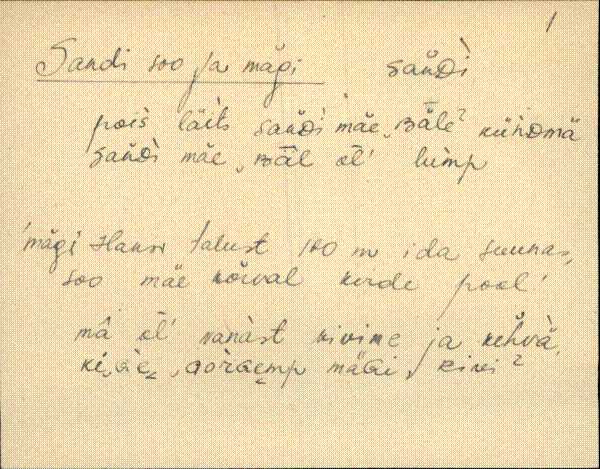 1
Sandi soo ja mägi sań̆Dì
pois̀ läit̀s sań̆Dì mäe͵ʙǟle ̀ kün̆Dmä
sań̆Dì mäe͵ʙǟl ol̄' lùmp
mägi Hansi talust 100 m ida suunas,
soo mäe kõrval kirde pool
mā ol̄' vanast kivine ja kehvä,
mäGi, kivi